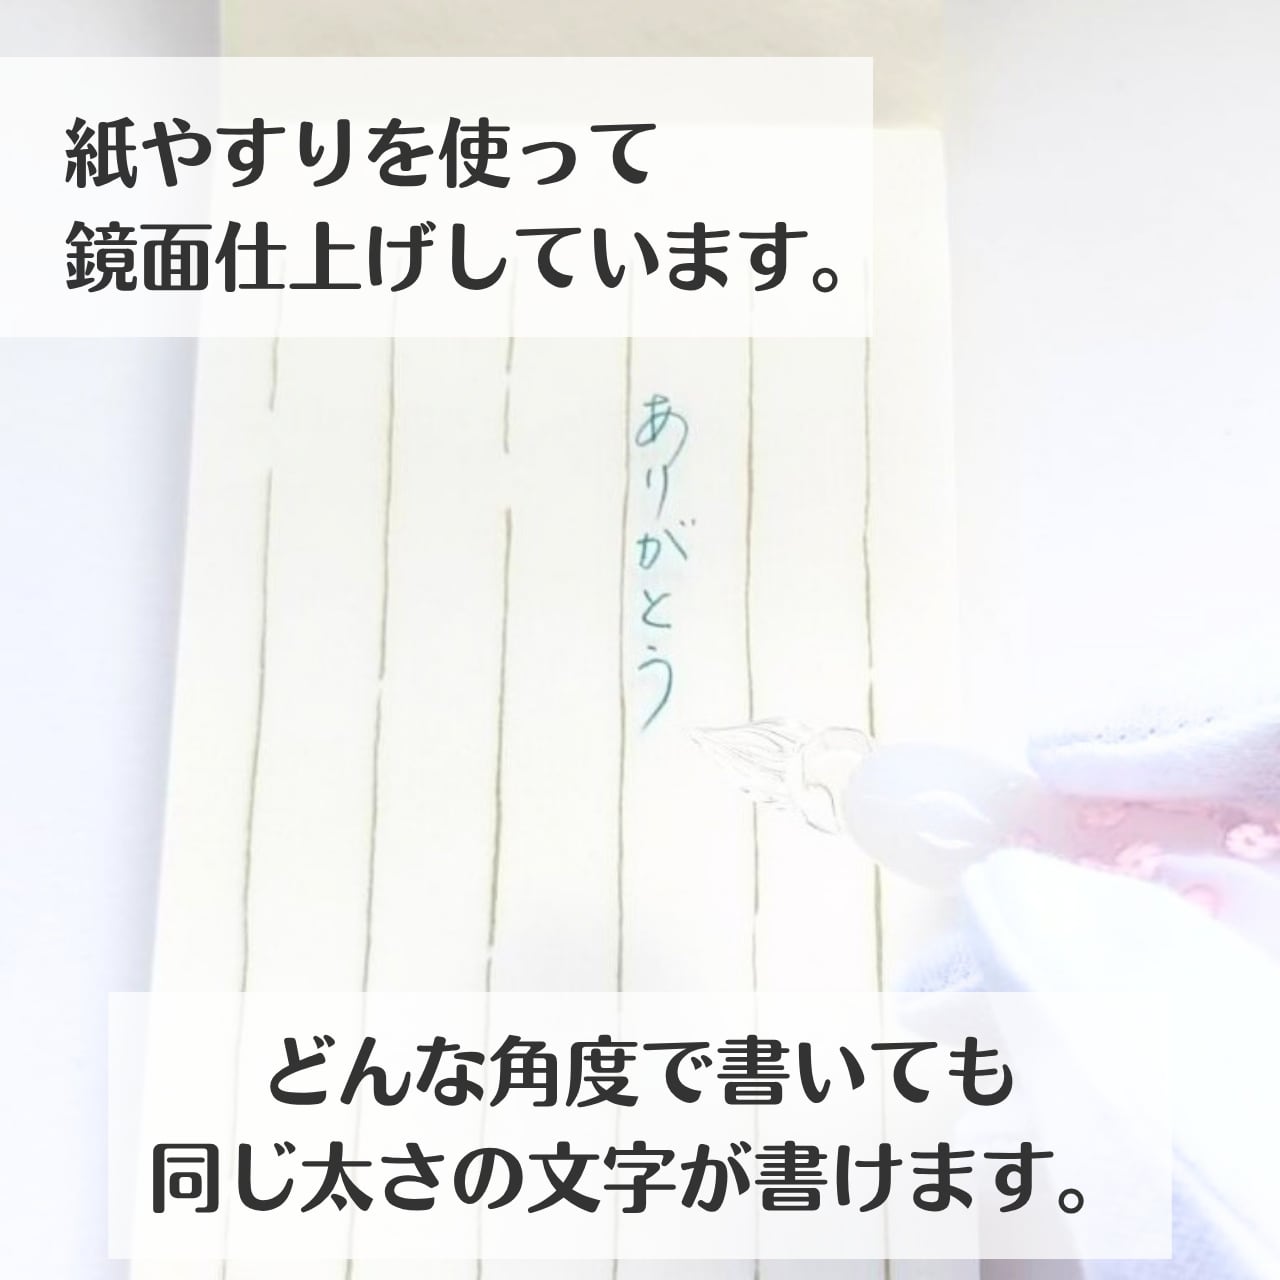 紙やすりを使って
鏡面仕上げしています。
ありがとう
どんな角度で書いても
同じ太さの文字が書けます。